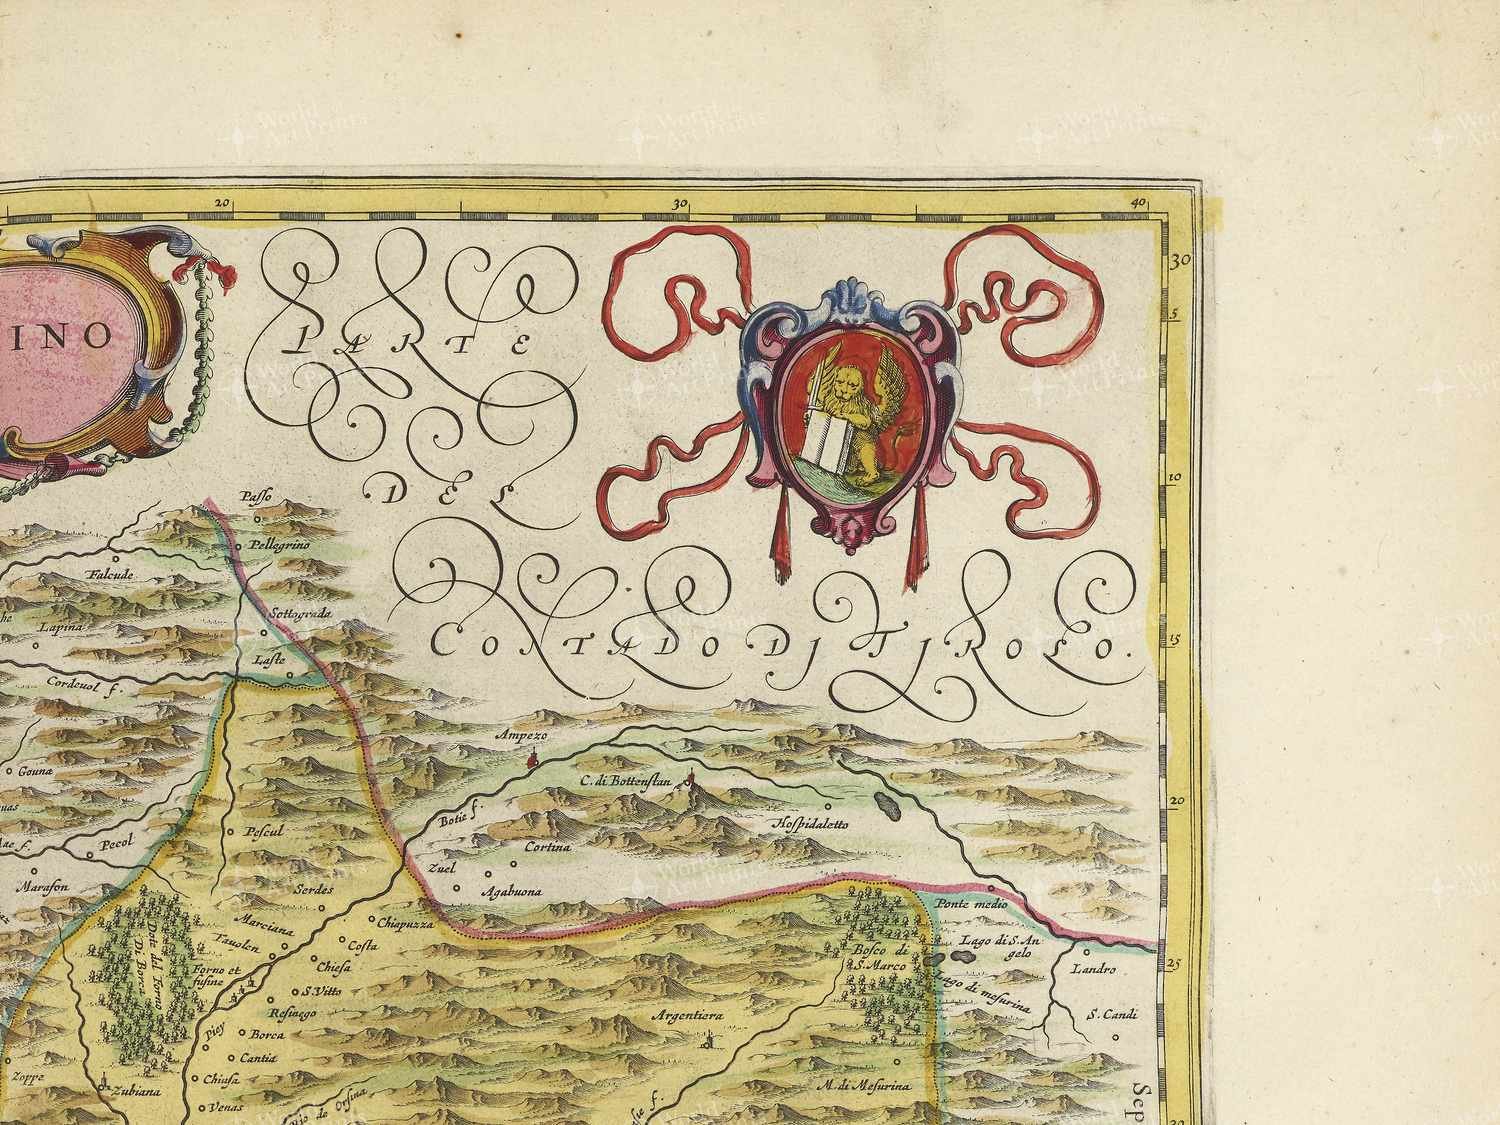 20
30
40
30
INO
PARTE
5
DEL
10
Passo
Pellegrino
Falcude
Sottograda
Lapina
CONTADO DI TIROLO.
15
Laste
Cordeuol f.
Ampezo
Gouna
C. di Bottenstan
20
Botie f.
Hospidaletto
Pescul
Pecol
Cortina
Zuel
Marason
Serdes
Agabuona
Ponte medio
Marciana
Chiapuzza
Tauolen
Costa
Bosco di
S. Marco
Lago di S. An
gelo
Forno et
fusine
Chiesa
Landro
25
Lago di mesurina
S. Vitto
Resinego
Piey
Borca
Argentiera
S. Candi
Cantia
Zoppe
Chiasa
M. di Mesurina
Zubiana
Venas
Sep